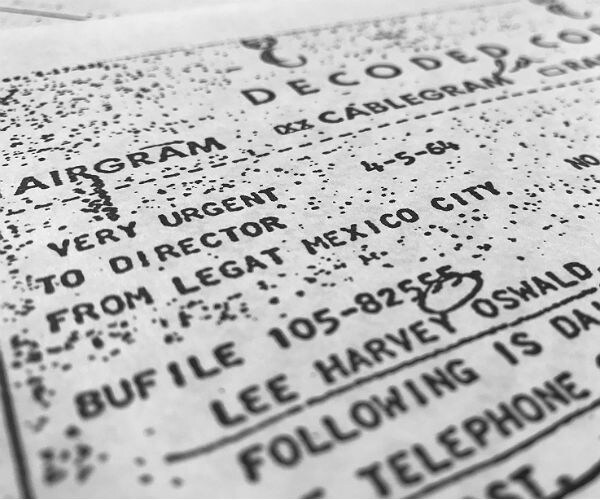 DECODED CO
AIRGRAM XX CABLEGRAM RA
4-5-64
VERY URGENT
TO DIRECTOR NO
FROM LEGAT MEXICO CITY
BUFILE 105-82555
LEE HARVEY OSWALD.
FOLLOWING IS
TELEPHONE